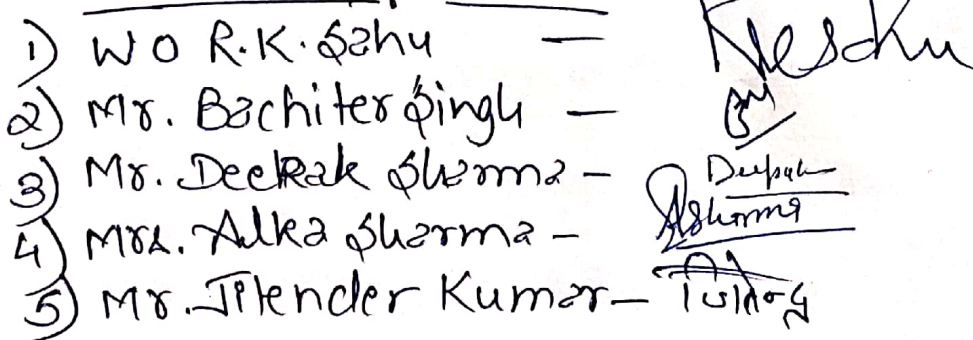 1) WO R.K. Sahu —
2) Mr. Bachiter Singh —
3) Mr. Deepak Sharma — Deepak
4) Mrs. Alka Sharma — ASharma
5) Mr. Jitender Kumar — जितेन्द्र